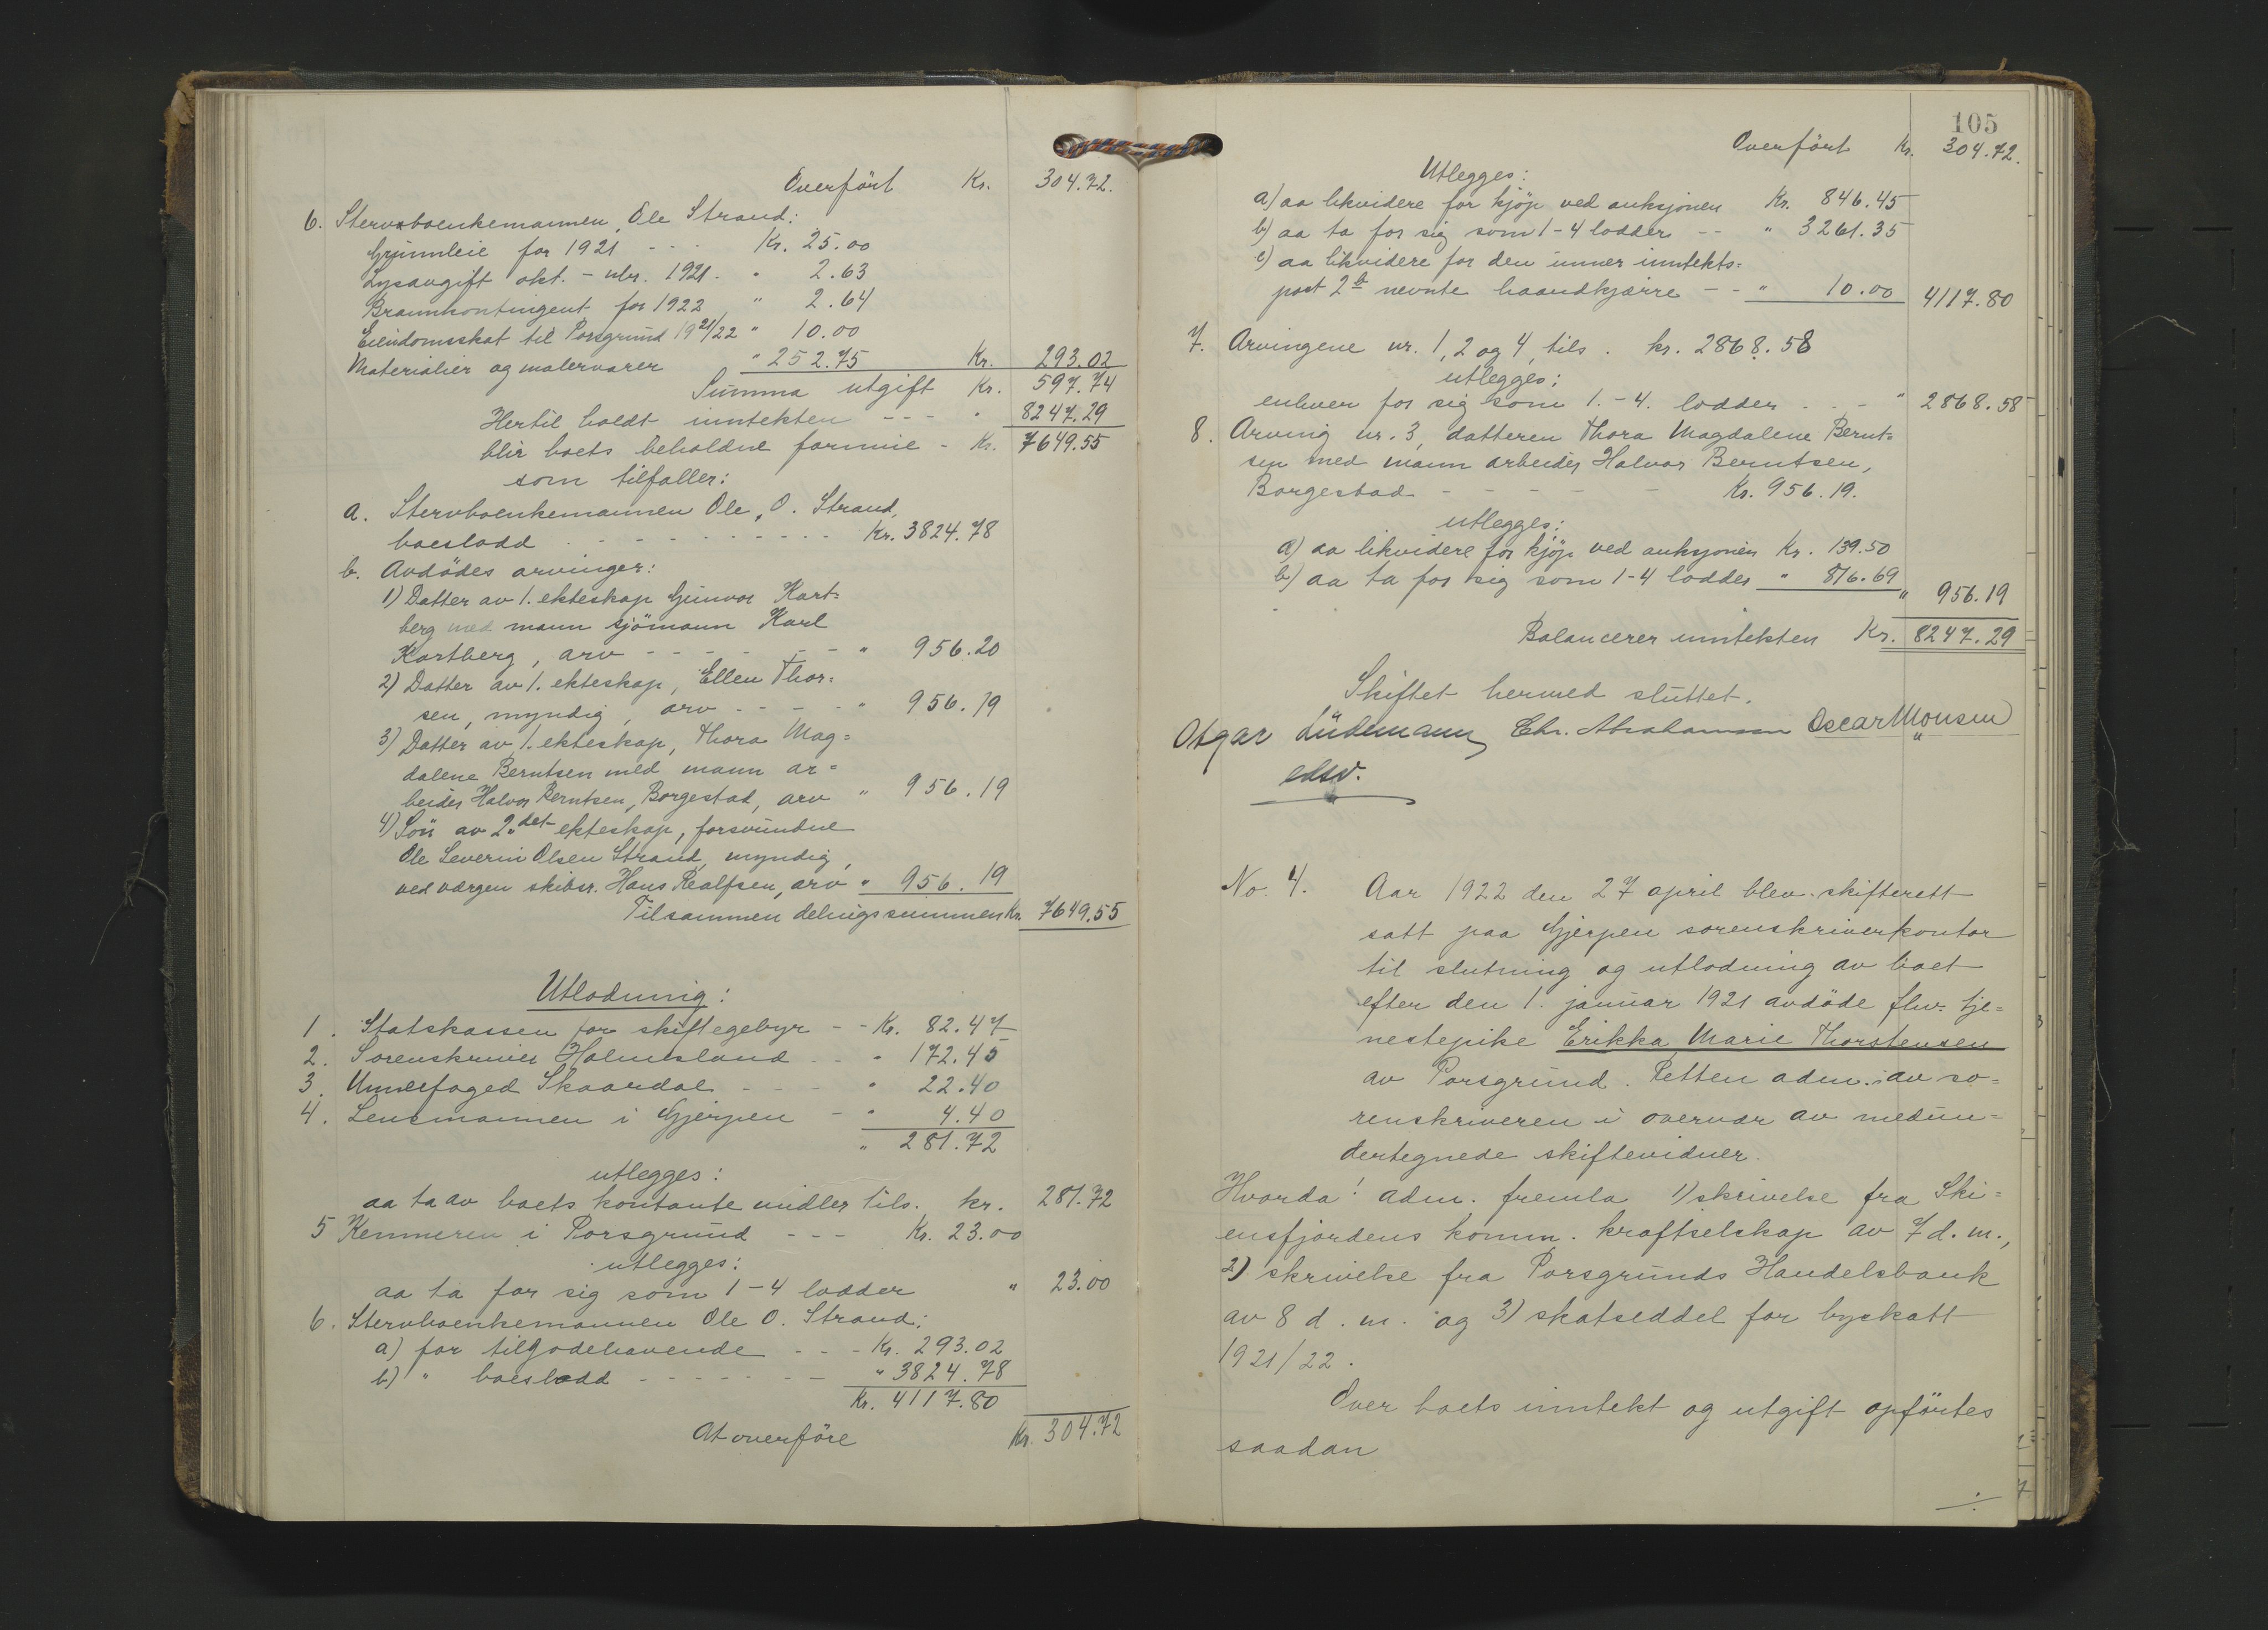 Overfört Kr. 304.72.
6. Stervboenkemannen, Ole Strand:
Grunnleie for 1921 - - - Kr. 25.00
Lysavgift okt. - nbr. 1921. " 2.63
Brannkontingent for 1922 " 2.64
Eiendomsskat til Porsgrund 1921/22 " 10.00
Materialier og malervarer " 252.75 Kr. 293.02
Summa utgift Kr. 597.74
Hertil holdt inntekten - - - " 8247.29
blir boets beholdne formue - Kr. 7649.55
som tilfaller:
a. Stervboenkemannen Ole O. Strand,
boeslodd - - - - - - - - - - Kr. 3824.78
b. Avdödes arvinger:
1) Datter av 1. ekteskap Gunvor Kart=
berg med mann sjömann Karl
Kartberg, arv - - - - - - " 956.20
2) Datter av 1. ekteskap, Ellen Thor=
sen, myndig, arv - - - - " 956.19
3) Datter av 1. ekteskap, Thora Mag=
dalene Berntsen med mann ar=
beider Halvor Berntsen, Borgestad, arv " 956.19
4) Sön av 2det ekteskap, forsvundne
Ole Severin Olsen Strand, myndig,
ved værgen skibsr. Hans Realfsen, arv " 956.19
Tilsammen delingssummen Kr. 7649.55
Utlodning:
1. Statskassen for skiftegebyr - - Kr. 82.47
2. Sorenskriver Holmesland - - " 172.45
3. Underfoged Skaardal - - - " 22.40
4. Lensmannen i Gjerpen - " 4.40
" 281.72
utlegges:
aa ta av boets kontante midler tils. kr. 281.72
5 Kemneren i Porsgrund - - - Kr. 23.00
utlegges:
aa ta for sig som 1-4 lodder " 23.00
6. Stervboenkemannen Ole O. Strand:
a) for tilgodehavende - - - Kr. 293.02
b) " boeslodd - - - - - - - " 3824.78
Kr. 4117.80
At overföre Kr. 304.72
105
Overfört Kr. 304.72.
Utlegges:
a) aa likvidere for kjöp ved auksjonen Kr. 846.45
b) aa ta for sig som 1-4 lodder - - " 3261.35
c) aa likvidere for den unner inntekts=
post 2b nevnte haandkjærre - - " 10.00 4117.80
7. Arvingene nr. 1, 2 og 4, tils. kr. 2868.58
utlegges:
enhver for sig som 1.-4. lodder - - - " 2868.58
8. Arving nr. 3, datteren Thora Magdalene Bernt=
sen med mann arbeider Halvor Berntsen,
Borgestad - - - - - Kr. 956.19.
utlegges:
a) aa likvidere for kjöp ved auksjonen Kr. 139.50
b) aa ta for sig som 1-4 lodder " 816.69
" 956.19
Balancerer inntekten Kr. 8247.29
Skiftet hermed sluttet.
Otgar Lüdemann Chr. Abrahamsen Oscar Monsen
edsv.
No. 4. Aar 1922 den 27 april blev skifterett
satt paa Gjerpen sorenskriverkontor
til slutning og utlodning av boet
efter den 1. januar 1921 avdöde fhv. tje=
nestepike Erikka Marie Thorstensen
av Porsgrund. Retten adm. av so=
renskriveren i overvær av medun=
dertegnede skiftevidner.
Hvorda! adm. fremla 1) skrivelse fra Ski=
ensfjordens komm. kraftselskap av 7 d. m.,
2) skrivelse fra Porsgrunds Handelsbank
av 8 d. m. og 3) skatseddel for byskatt
1921/22.
Over boets inntekt og utgift opförtes
saadan